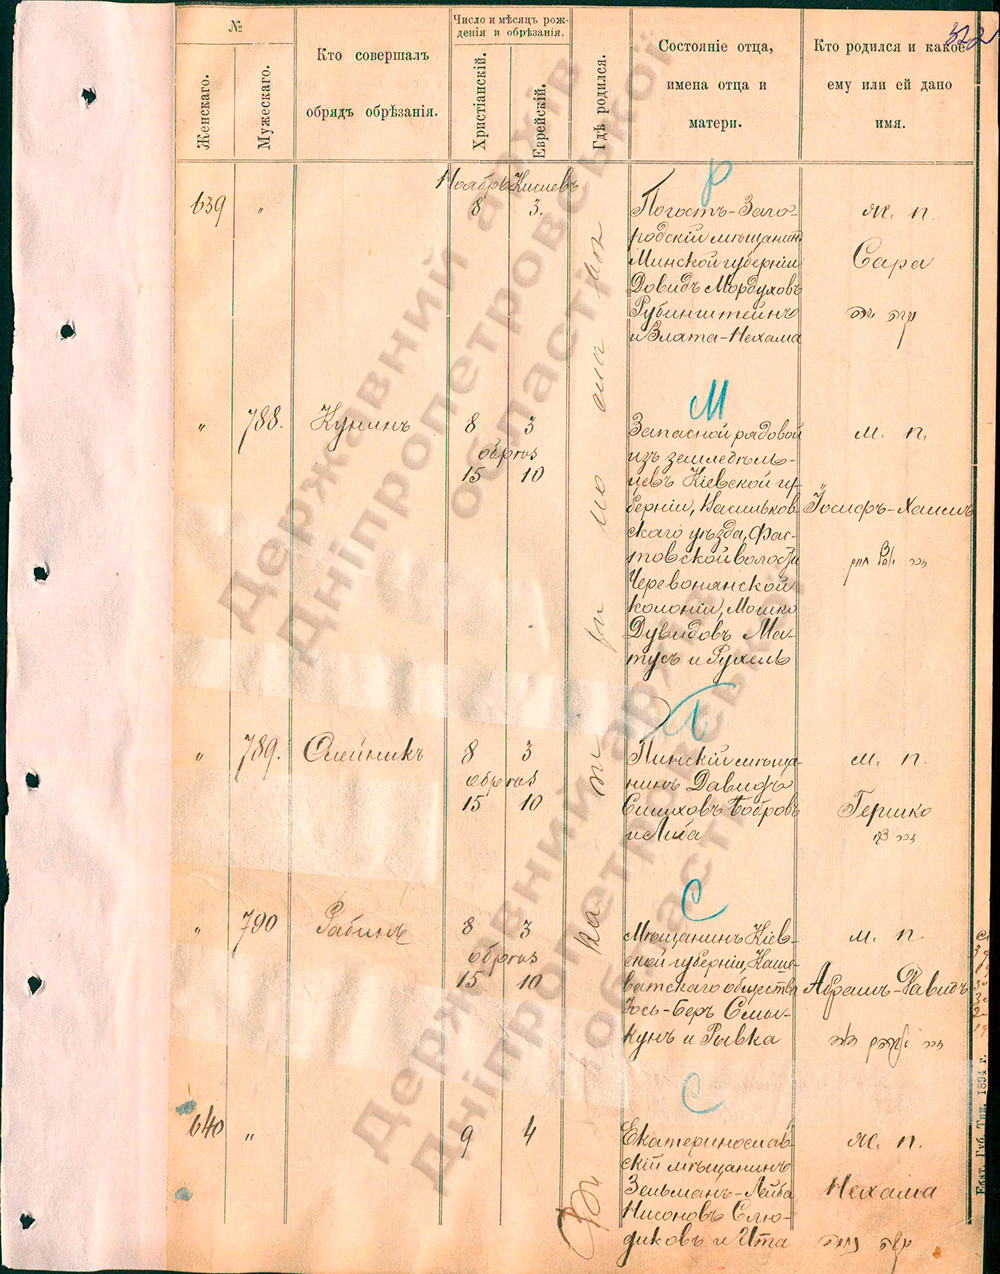 322
№
Женскаго.
Мужескаго.
Кто совершалъ
обрядъ обрѣзанія.
Число и мѣсяцъ рож-
денія и обрѣзанія.
Христіанскій.
Еврейскій.
Гдѣ родился.
Состояніе отца,
имена отца и
матери.
Кто родился и какое
ему или ей дано
имя.
Ноябрь Кислевъ
639 " 8 3.
Р
Погостъ-Заго-
родскій мѣщанинъ
Минской губерніи
Довидъ Мордуховъ
Рубинштейнъ
и Злата-Нехама
ж. п.
Сара
" 788. Кунинъ 8 3
обрѣз
15 10
М
Запасной рядовой
изъ земледѣль-
цевъ Кіевской гу-
берніи, Васильков-
скаго уѣзда, Фас-
товской волости
Черевонянской
колоніи, Мошко
Дувидовъ Ма-
тусъ и Рухель
м. п.
Іосифъ-Хаимъ
" 789. Олейникъ 8 3
обрѣз
15 10
Пинскій мѣща-
нинъ Давидъ
Симховъ Бобровъ
и Либа
м. п.
Гершко
" 790 Рабинъ 8 3
обрѣз
15 10
С
Мѣщанинъ Кіев-
ской губерніи, Каше-
ватскаго общества
Іось-Беръ Смы-
кунъ и Рывка
м. п.
Абрамъ-Давидъ
640 " 9 4
С
Екатеринослав-
скій мѣщанинъ
Зельманъ-Лейба
Нисоновъ Слю-
диковъ и Ита
ж. п.
Нехама
Екат. Губ. Тип. 1894 г.
Державний архів
Дніпропетровської
області
Державний архів
Дніпропетровської
області